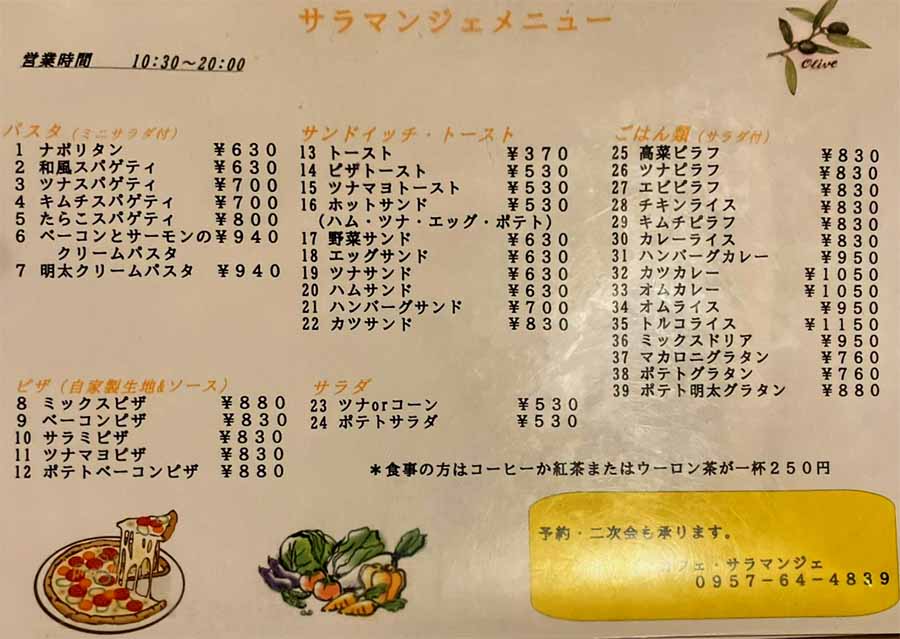 サラマンジェメニュー
Olive
営業時間　10:30～20:00
パスタ（ミニサラダ付）
1 ナポリタン ￥630
2 和風スパゲティ ￥630
3 ツナスパゲティ ￥700
4 キムチスパゲティ ￥700
5 たらこスパゲティ ￥800
6 ベーコンとサーモンの ￥940
クリームパスタ
7 明太クリームパスタ ￥940
ピザ（自家製生地&ソース）
8 ミックスピザ ￥880
9 ベーコンピザ ￥830
10 サラミピザ ￥830
11 ツナマヨピザ ￥830
12 ポテトベーコンピザ ￥880
サンドイッチ・トースト
13 トースト ￥370
14 ピザトースト ￥530
15 ツナマヨトースト ￥530
16 ホットサンド ￥530
（ハム・ツナ・エッグ・ポテト）
17 野菜サンド ￥630
18 エッグサンド ￥630
19 ツナサンド ￥630
20 ハムサンド ￥630
21 ハンバーグサンド ￥700
22 カツサンド ￥830
サラダ
23 ツナorコーン ￥530
24 ポテトサラダ ￥530
ごはん類（サラダ付）
25 高菜ピラフ ￥830
26 ツナピラフ ￥830
27 エビピラフ ￥830
28 チキンライス ￥830
29 キムチピラフ ￥830
30 カレーライス ￥830
31 ハンバーグカレー ￥950
32 カツカレー ￥1050
33 オムカレー ￥1050
34 オムライス ￥950
35 トルコライス ￥1150
36 ミックスドリア ￥950
37 マカロニグラタン ￥760
38 ポテトグラタン ￥760
39 ポテト明太グラタン ￥880
＊食事の方はコーヒーか紅茶またはウーロン茶が一杯250円
予約・二次会も承ります。
フェ・サラマンジェ
0957-64-4839